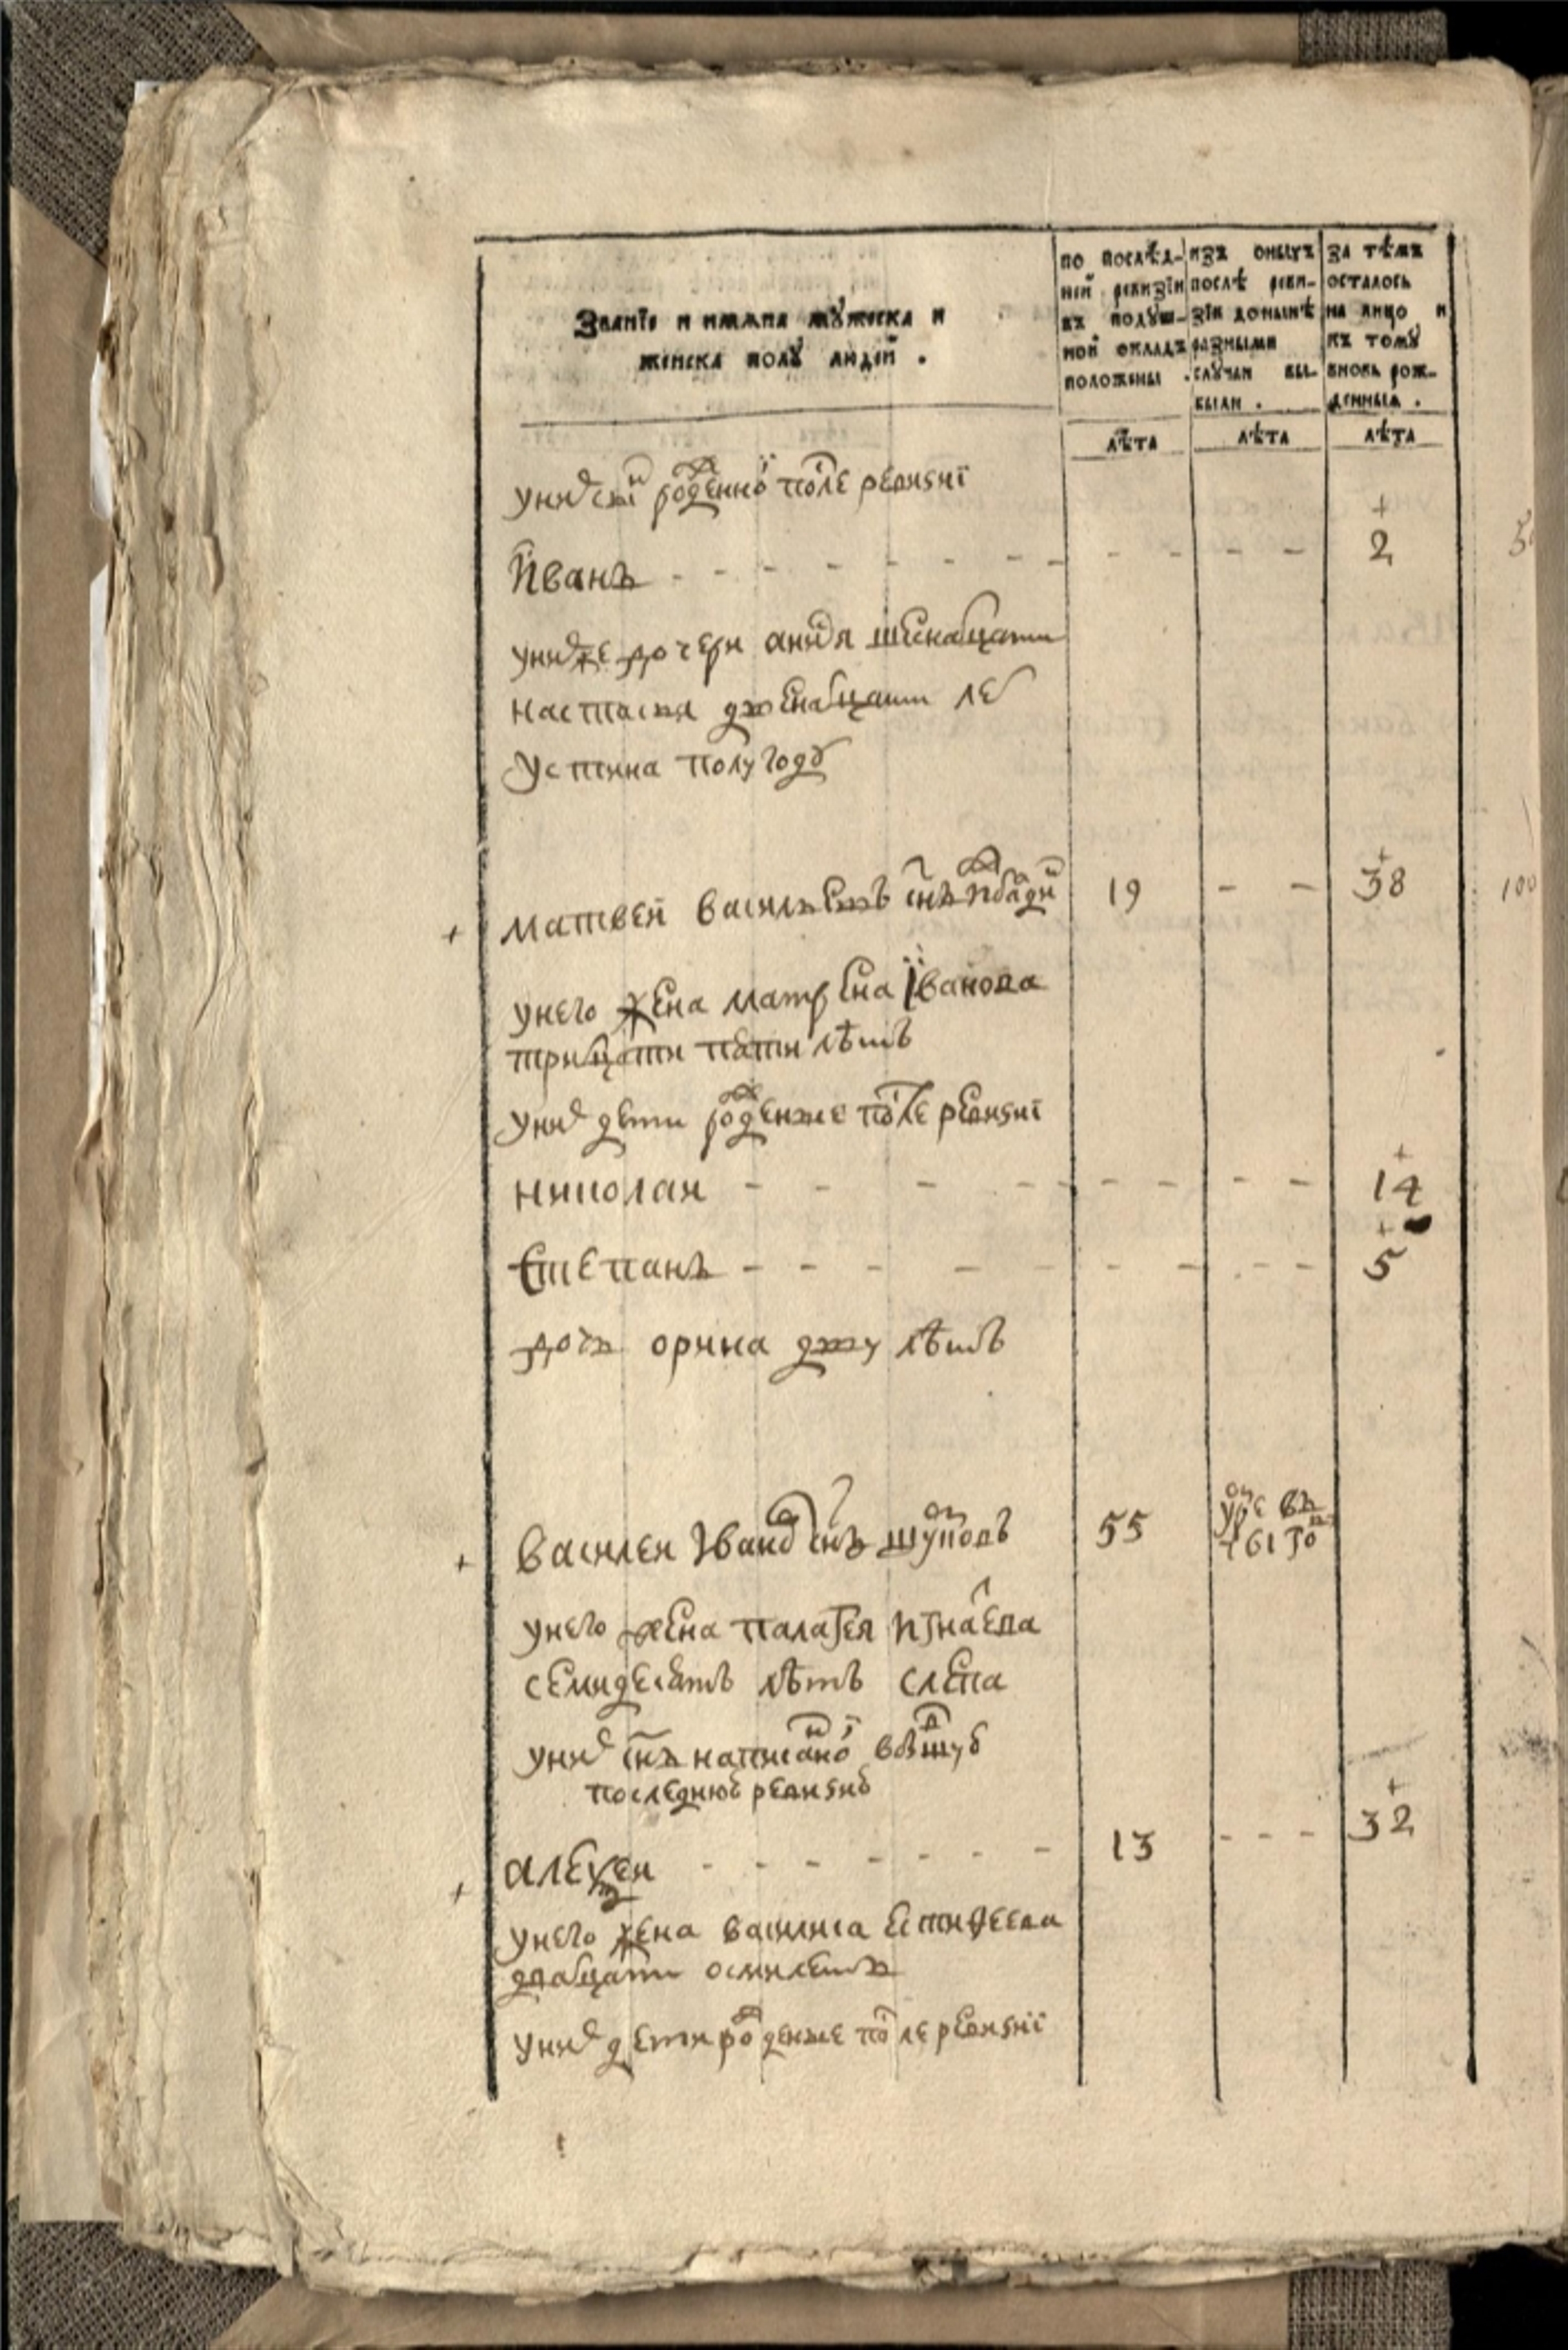 Званїе и имѧна мꙋжеска и
женска полꙋ людей .
по послѣд-
ней ревизїи
въ подꙋш-
ной окладъ
положены .
изъ оныхъ
послѣ реви-
зїи донынѣ
разными
слꙋчаи вы-
были .
за тѣмъ
осталось
на лицо и
къ томꙋ
вновь рож-
денныѧ .
лѣта
лѣта
лѣта
уних снъ рожденной после ревизиї
+
Иванъ - - - - - - - - - - - 2
унихже дочери шеснатцати
настасья лет
устина полугоду
+ матвей васильевъ снъ 19 - - +38
100
унего жена матрена Їванова
трицати пяти лѣтъ
уних дети рожденые после ревизиї
николаи - - - - - - - - - +14
степанъ - - - - - - - - - +5
дочь орина дву лѣтъ
+ василеи Иванов снъ шуповъ 55
унего жена палагея игнатева
семидесятъ лѣтъ слепа
уних снъ написаной вбывшую
последнюю ревизию
+ алеѯеи - - - - - - - 13 - - - +32
унего жена василиса естифеева
двацати осми летъ
уних дети рожденые после ревизиї